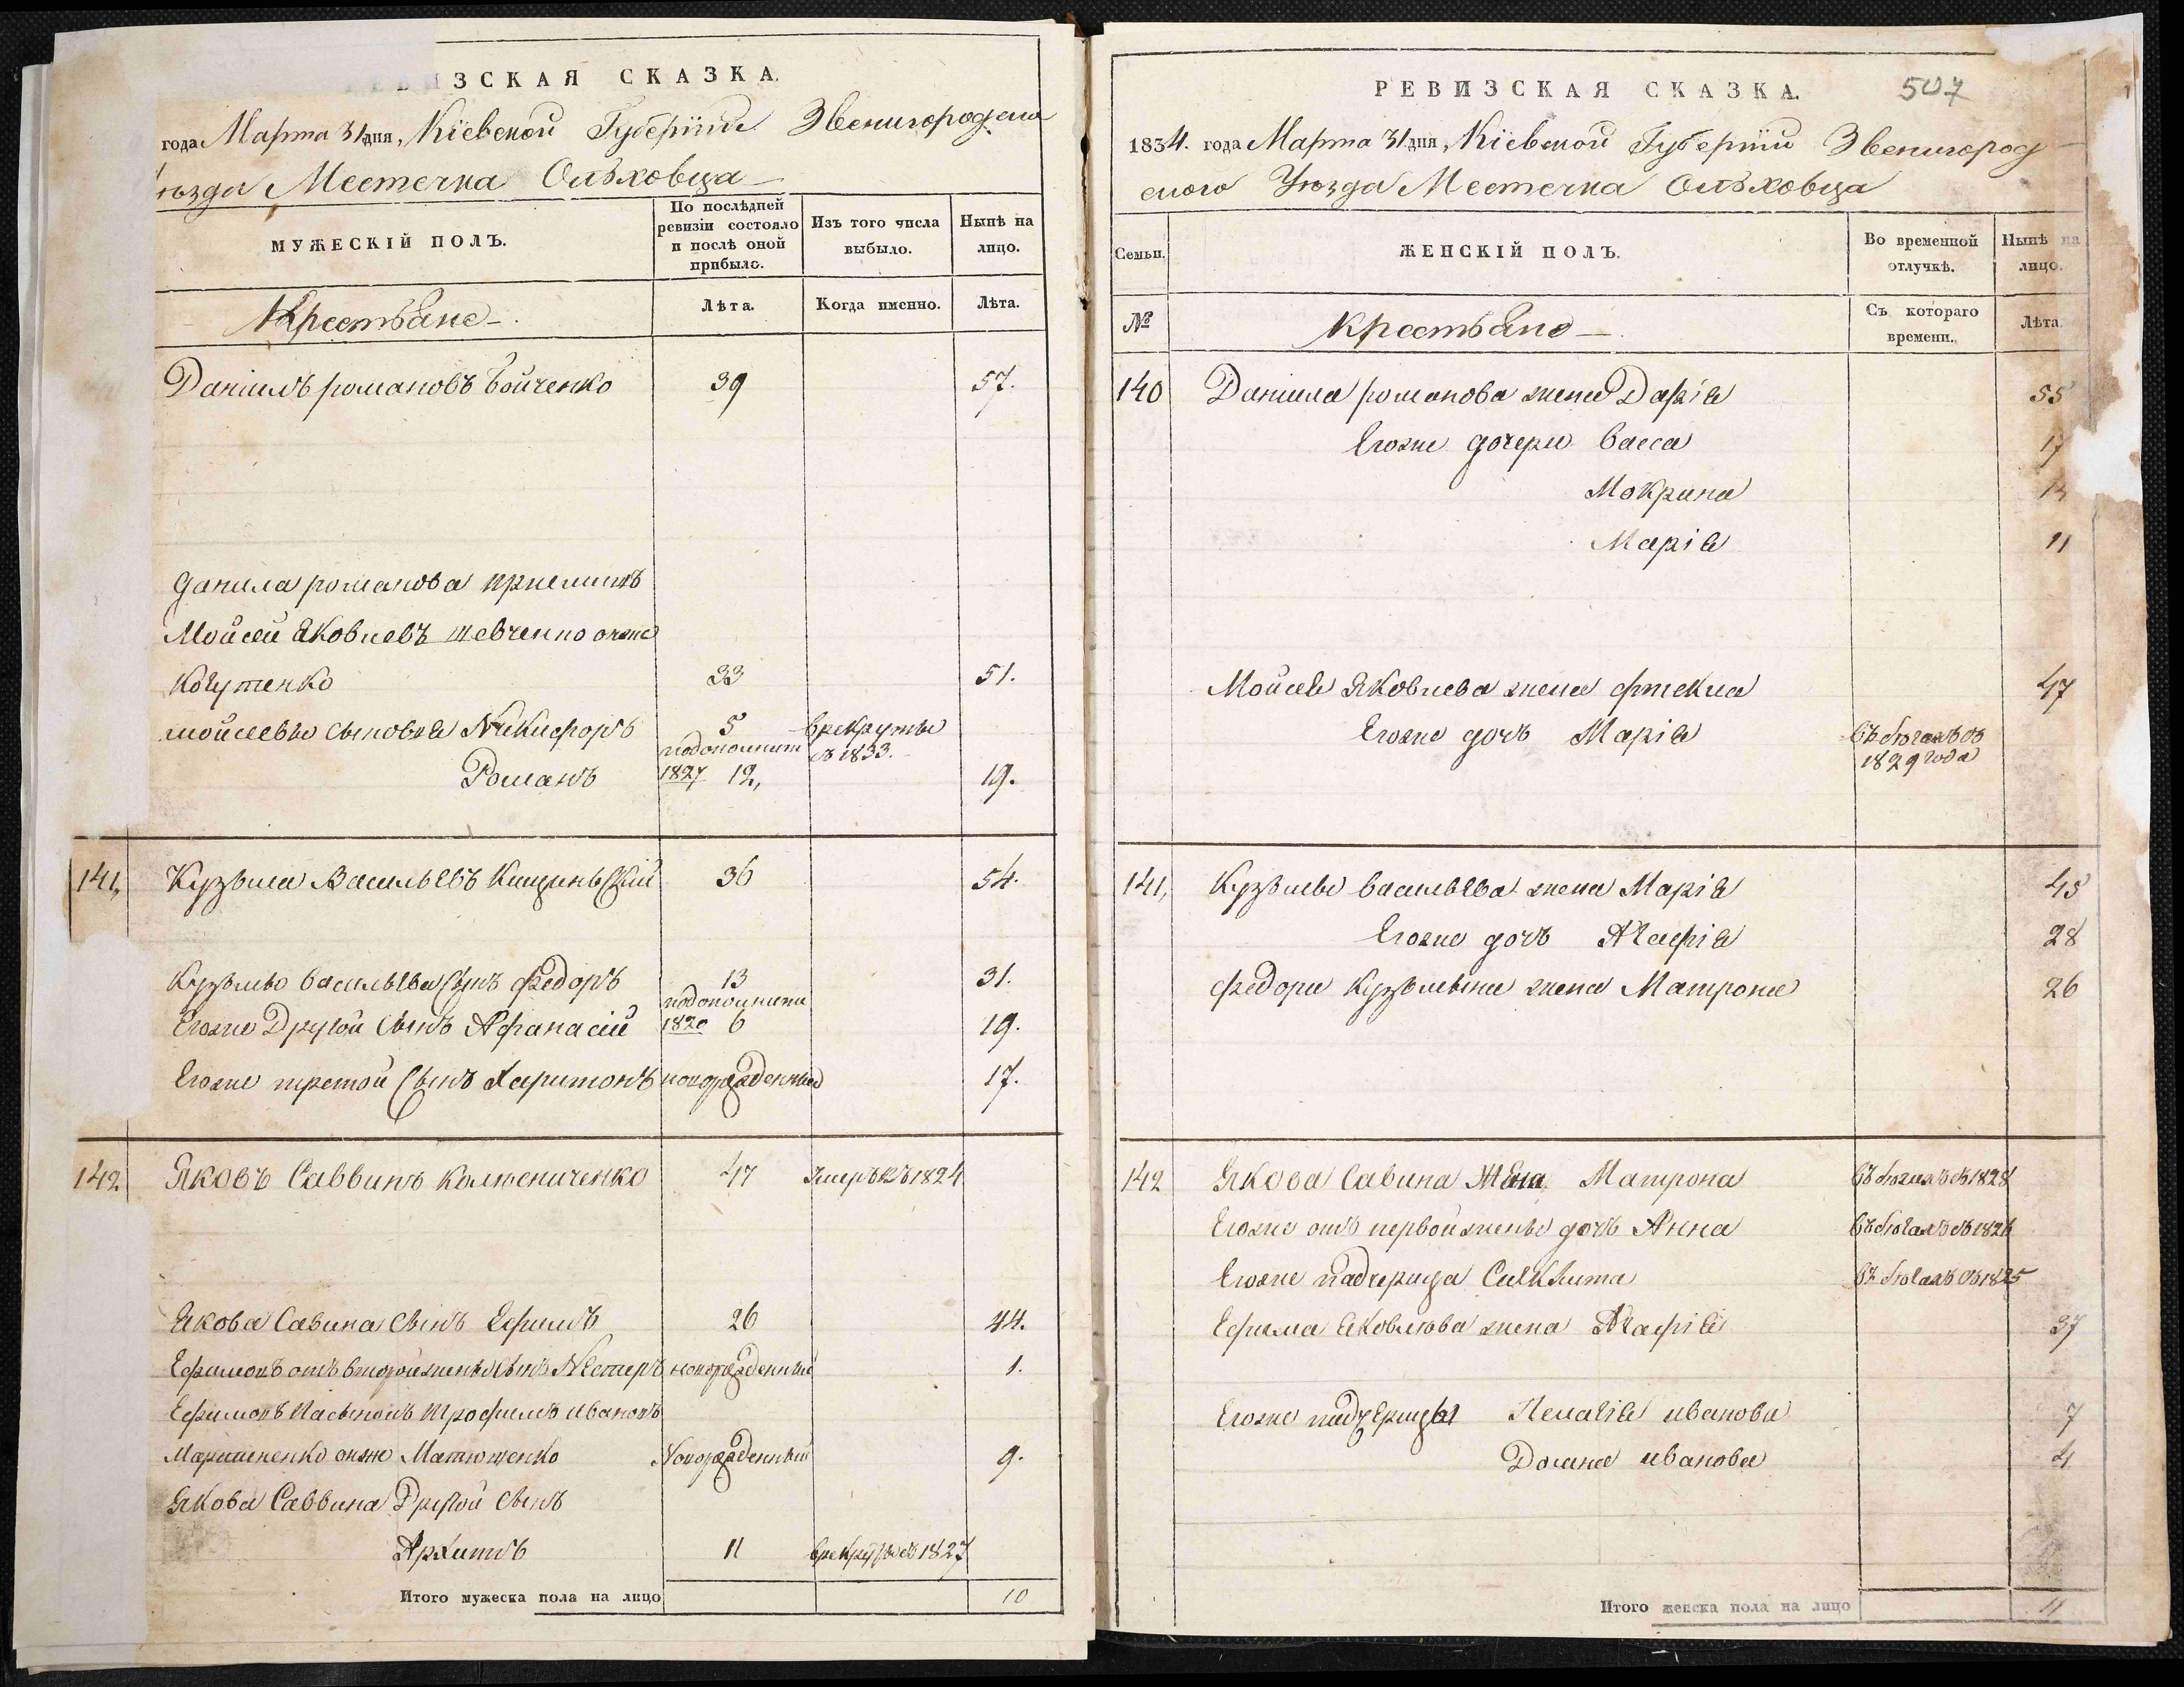 РЕВИЗСКАЯ СКАЗКА.
года Марта 31 дня, Кіевской Губерніи Звенигородска
уѣзда Местечка Ольховца
МУЖЕСКІЙ ПОЛЪ.
По послѣдней ревизіи состояло и послѣ оной прибыло.
Изъ того числа выбыло.
Нынѣ на лицо.
Крестьане
Лѣта.
Когда именно.
Лѣта.
Данилъ романовъ бойченко 39 57.
данила романова приемишъ
Мойсей Яковлевъ шевченко онже
Когутенко 33 51.
мойсеевы сыновья Никифоръ 5 врекруты въ 1833.
Романъ подополнит 1827 12, 19.
141, Кузьма Васильевъ Кищинский 36 54.
Кузьмы васильева сынъ федоръ 13 31.
Егоже Другой сынъ Афанасий подополнити 1820 6 19.
Егоже третой сынъ Харитонъ новорожденный 17.
142. Яковъ Саввинъ Колесниченко 47 Умеръ въ 1824
Якова Савина сынъ Ефимъ 26 44.
Ефимовъ отъ второй жены сынъ Нестеръ новорожденный 1.
Ефимовъ пасынокъ Трофимъ ивановъ
Мартиненко онже Матющенко Новорожденный 9.
Якова Саввина Другой сынъ
Архипъ 11 врекруты въ 1827
Итого мужеска пола на лицо 10
РЕВИЗСКАЯ СКАЗКА. 507
1834. года Марта 31 дня, Кіевской Губерніи Звенигород
ского Уѣзда Местечка Ольховца
Семьи.
ЖЕНСКІЙ ПОЛЪ.
Во временной отлучкѣ.
Нынѣ на лицо.
№
Крестьане
Съ котораго времени.
Лѣта.
140 Данила романова жена Дарія 55
Егоже дочери Васса 17
Мокрина
Марія 11
Мойсея Яковлева жена фтекла 47
Егоже дочь Марія въ бегахъ съ 1829 года
141, Кузьмы васильева жена Марія 45
Егоже дочь Агафія 28
федора Кузьмина жена Матрона 26
142 Якова Савина Жена Матрона въ бегахъ съ 1828
Егоже отъ первой жены дочь Анна въ бегахъ съ 1826
Егоже падчерица въ бегахъ съ 1825
Ефима Яковлева жена Агафія 37
Егоже падчерицы Пелагія иванова 7
Домна иванова 4
Итого женска пола на лицо 11